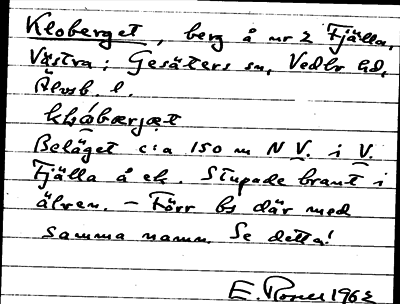 Kloberget, berg å nr 2 Fjälla,
Västra; Gesäters sn, Vedbo hd,
Älvsb. l.
Beläget c:a 150 m N V. i V.
Fjälla å ek. Stupade brant i
älven. – Förr bs där med
samma namn. Se detta!
E. 1962